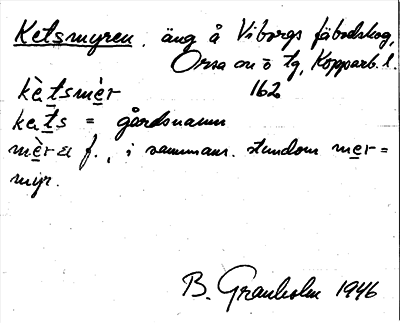 Ketsmyren. äng å Viborgs fäbodskog,
Orsa sn o tg, Kopparb. l.
162
kètsmèr
kets = gårdsnamn
mèra f., i sammans. stundom mer =
myr.
B. Granholm 1946